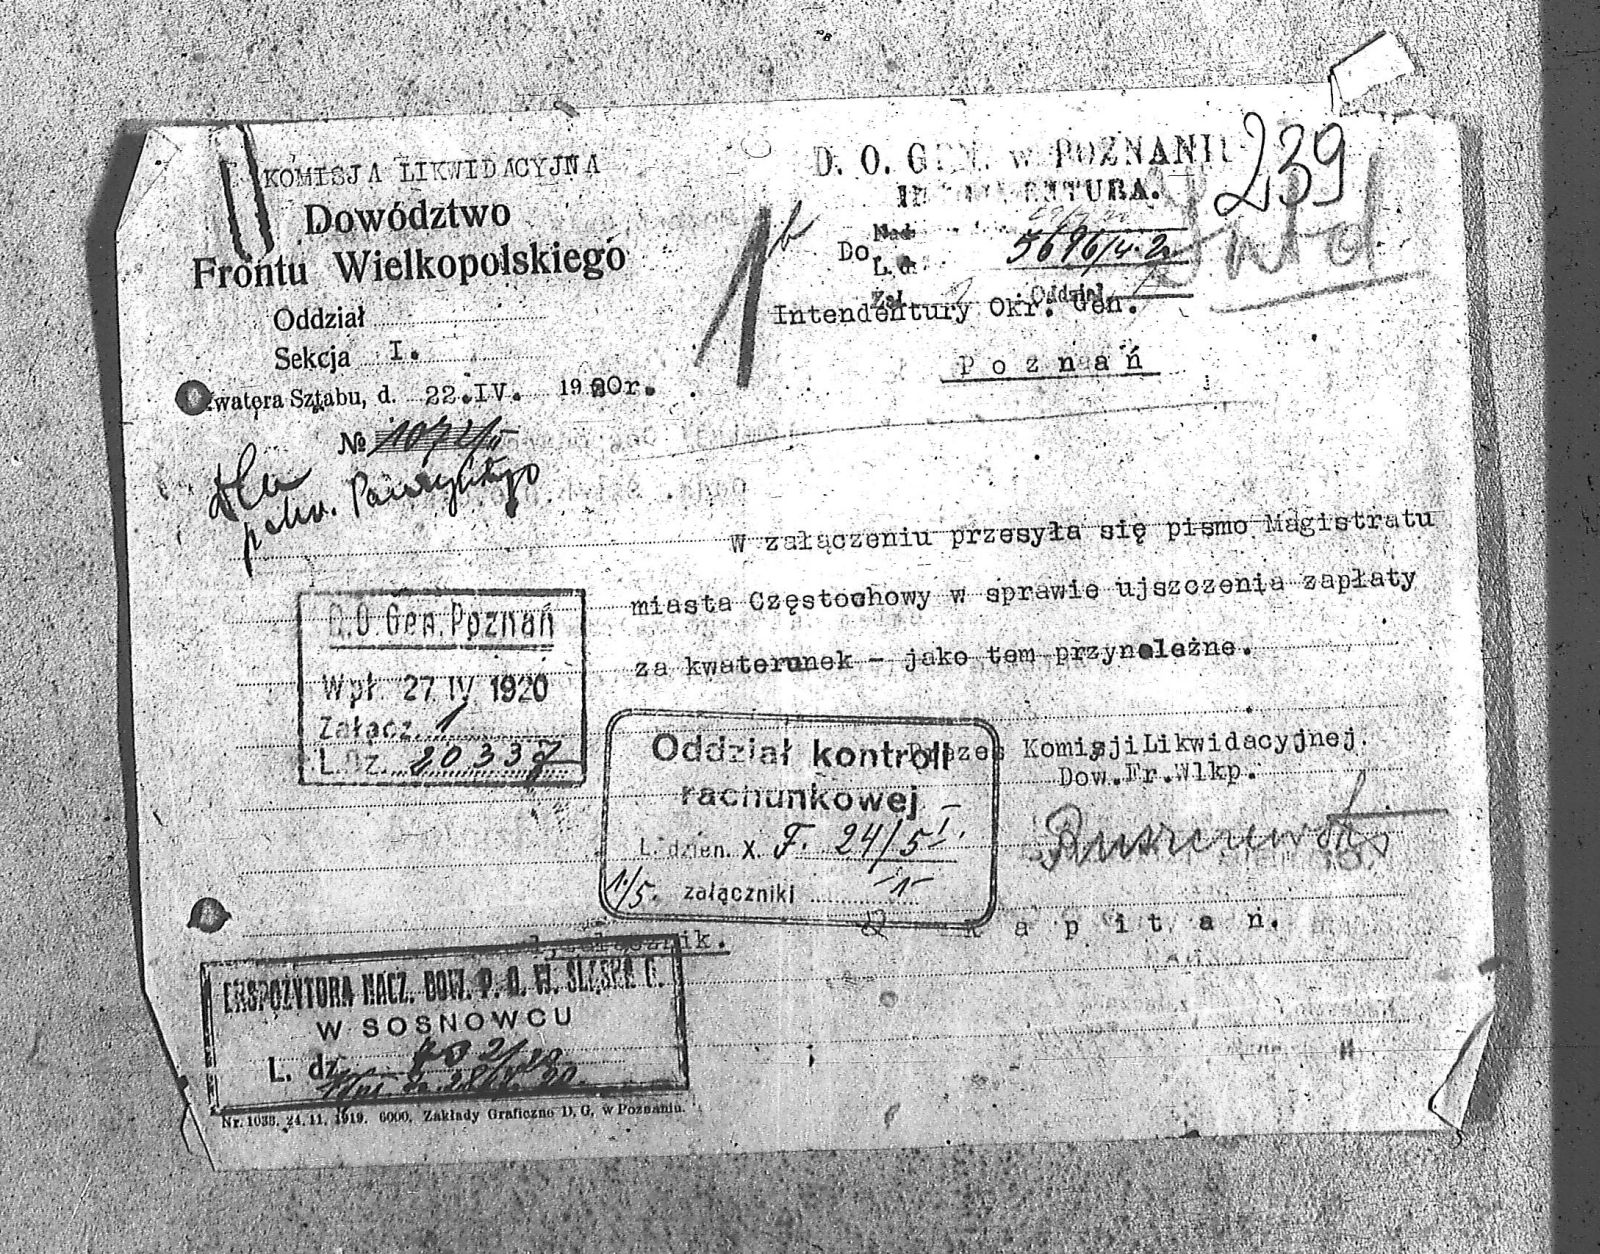 KOMISJA LIKWIDACYJNA
Dowództwo
Frontu Wielkopolskiego
Oddział
Sekcja I.
Kwatera Sztabu, d. 22.IV. 1920r.
№ 1072/II
dla
D. O. GEN. w POZNANIU
INTENDENTURA.
239
Nad.
L. d. 5696/4.2
Zał. Oddział
Do
Intendentury Okr. Gen.
Poznań
W załączeniu przesyła się pismo Magistratu
miasta Częstochowy w sprawie ujszczenia zapłaty
za kwaterunek - jako tem przynależne.
D.O.Gen.Poznań
Wpł. 27 IV 1920
Załącz. 1
L.Dz. 20337
Prezes Komisji Likwidacyjnej.
Dow.Fr.Wlkp.
Oddział kontroli
rachunkowej
L. dzien. X. F. 24/5
1/5. załączniki -1-
Kapitan.
1 załącznik.
EKSPOZYTURA NACZ. DOW. P. O. W. ŚLĄSKA G.
W SOSNOWCU
L. dz.
Nr. 1038. 24.11. 1919. 6000. Zakłady Graficzne D. G. w Poznaniu.